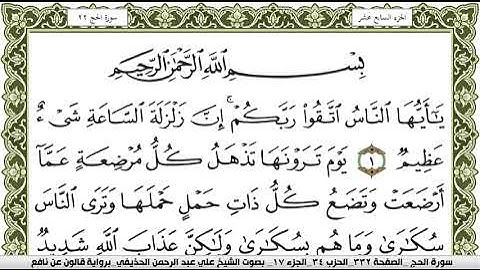 الجزء السابع عشر
سورة الحج ٢٢
بِسْمِ اللَّهِ الرَّحْمَٰنِ الرَّحِيمِ
يَٰأَيُّهَا النَّاسُ اتَّقُوا رَبَّكُمْ ۚ إِنَّ زَلْزَلَةَ السَّاعَةِ شَيْءٌ
عَظِيمٌ ١ يَوْمَ تَرَوْنَهَا تَذْهَلُ كُلُّ مُرْضِعَةٍ عَمَّا
أَرْضَعَتْ وَتَضَعُ كُلُّ ذَاتِ حَمْلٍ حَمْلَهَا وَتَرَى النَّاسَ
سُكَٰرَىٰ وَمَا هُم بِسُكَٰرَىٰ وَلَٰكِنَّ عَذَابَ اللَّهِ شَدِيدٌ
سورة الحج _ الصفحة ٣٣٢ _ الحزب ٣٤ _ الجزء ١٧ _ بصوت الشيخ علي عبد الرحمن الحذيفي _ برواية قالون عن نافع